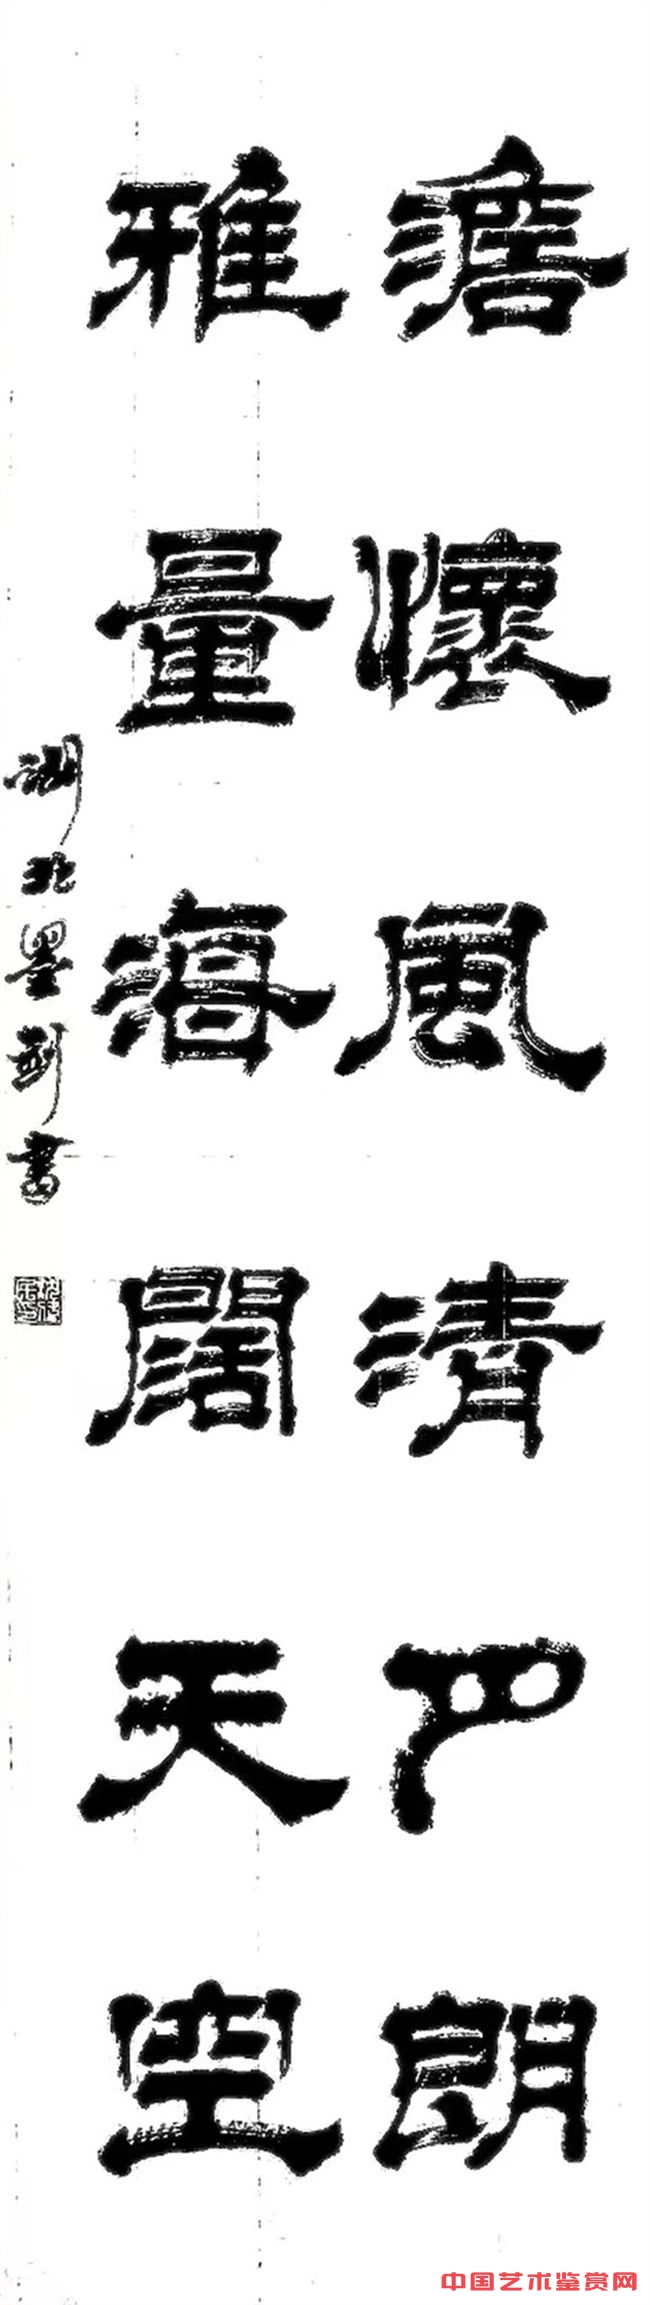 澹懷風清月朗
雅量海闊天空
湖北墨剑書
中国艺术鉴赏网